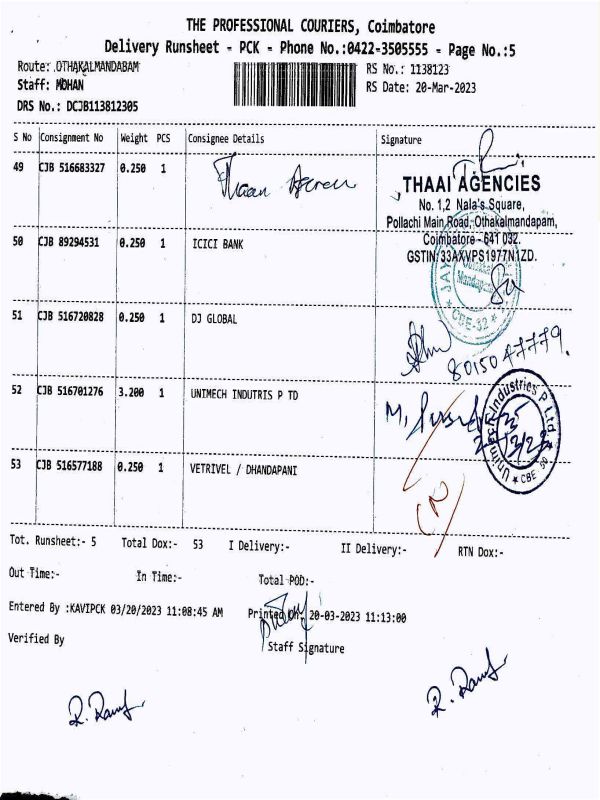 THE PROFESSIONAL COURIERS, Coimbatore
Delivery Runsheet - PCK - Phone No.:0422-3505555 - Page No.:5
Route: OTHAKALMANDABAM RS No.: 1138123
Staff: MOHAN RS Date: 20-Mar-2023
DRS No.: DCJB113812305
S No Consignment No Weight PCS Consignee Details Signature
49 CJB 516683327 0.250 1 Thaai
THAAI AGENCIES
No. 1,2 Nala's Square,
Pollachi Main Road, Othakalmandapam,
Coimbatore - 641 032.
GSTIN:33AXVPS1977N1ZD.
50 CJB 89294531 0.250 1 ICICI BANK
CBE-32
51 CJB 516720828 0.250 1 DJ GLOBAL
8015047779.
52 CJB 516701276 3.200 1 UNIMECH INDUTRIS P TD
Unimech Industries P Ltd. CBE 50
53 CJB 516577188 0.250 1 VETRIVEL / DHANDAPANI
Tot. Runsheet:- 5 Total Dox:- 53 I Delivery:- II Delivery:- RTN Dox:-
Out Time:- In Time:- Total POD:-
Entered By :KAVIPCK 03/20/2023 11:08:45 AM Printed On: 20-03-2023 11:13:00
Verified By Staff Signature